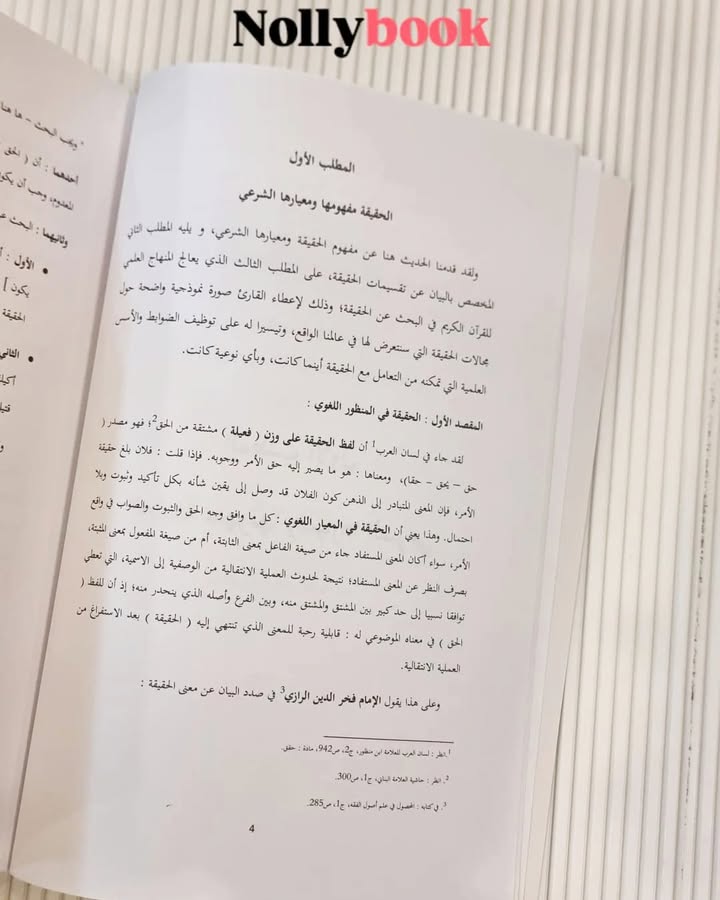 Nollybook
المطلب الأول
الحقيقة مفهومها ومعيارها الشرعي
ولقد قدمنا الحديث هنا عن مفهوم الحقيقة ومعيارها الشرعي، و يليه المطلب الثاني
المخصص بالبيان عن تقسيمات الحقيقة، على المطلب الثالث الذي يعالج المنهاج العلمي
للقرآن الكريم في البحث عن الحقيقة؛ وذلك لإعطاء القارئ صورة نموذجية واضحة حول
مجالات الحقيقة التي سنتعرض لها في عالمنا الواقع، وتيسيرا له على توظيف الضوابط والأسس
العلمية التي تمكنه من التعامل مع الحقيقة أينما كانت، وبأي نوعية كانت.
المقصد الأول : الحقيقة في المنظور اللغوي :
لقد جاء في لسان العرب1 أن لفظ الحقيقة على وزن ( فعيلة ) مشتقة من الحق2؛ فهو مصدر (
حق – يحق - حقا)، ومعناها : هو ما يصير إليه حق الأمر ووجوبه. فإذا قلت : فلان بلغ حقيقة
الأمر، فإن المعنى المتبادر إلى الذهن كون الفلان قد وصل إلى يقين شأنه بكل تأكيد وثبوت وبلا
احتمال. وهذا يعني أن الحقيقة في المعيار اللغوي : كل ما وافق وجه الحق والثبوت والصواب في واقع
الأمر، سواء أكان المعنى المستفاد جاء من صيغة الفاعل بمعنى الثابتة، أم من صيغة المفعول بمعنى المثبتة،
بصرف النظر عن المعنى المستفاد؛ نتيجة لحدوث العملية الانتقالية من الوصفية إلى الاسمية، التي تعطي
توافقا نسبيا إلى حد كبير بين المشتق والمشتق منه، وبين الفرع وأصله الذي ينحدر منه؛ إذ أن للفظ (
الحق ) في معناه الموضوعي له : قابلية رحبة للمعنى الذي تنتهي إليه ( الحقيقة ) بعد الاستفراغ من
العملية الانتقالية.
وعلى هذا يقول الإمام فخر الدين الرازي3 في صدد البيان عن معنى الحقيقة :
1. انظر : لسان العرب للعلامة ابن منظور، ج2، ص942، مادة : حقق.
2. انظر : حاشية العلامة البناني، ج1، ص300.
3. في كتابه : المحصول في علم أصول الفقه، ج1، ص285.
4
ويجب البحث – ها هنا
أحدهما : أن ( الحق
المعدوم، وجب أن يكو
وثانيهما : البحث ع
• الأول :
يكون ]
الحقيقة
• الثاني